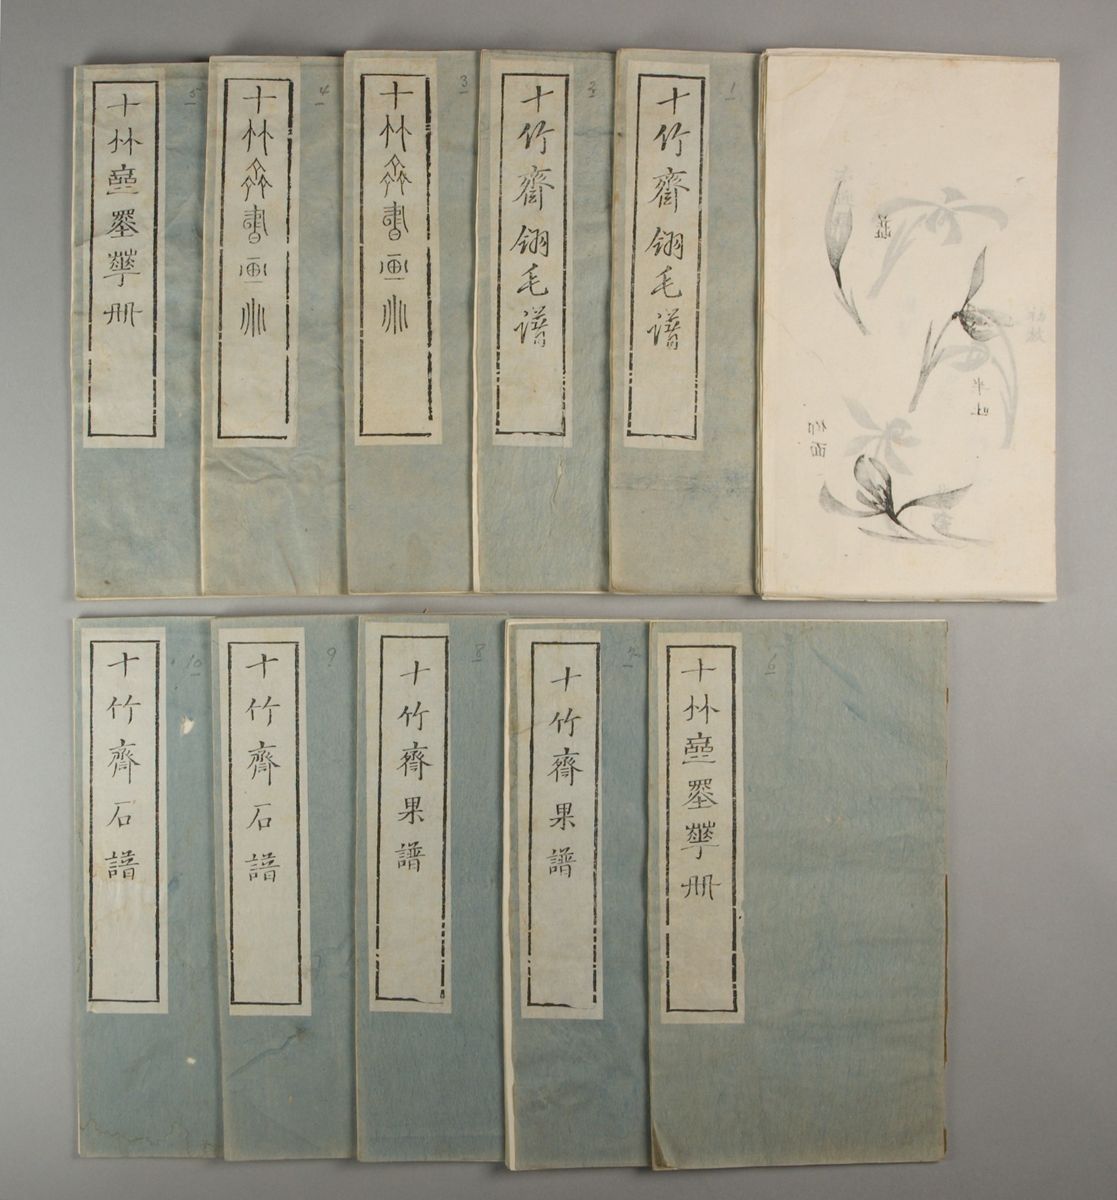 初放
半吐
仰面
1
十竹齋翎毛譜
2
十竹齋翎毛譜
3
十竹齋書画冊
4
十竹齋書画冊
5
十竹齋墨華冊
6
十竹齋墨華冊
7
十竹齋果譜
8
十竹齋果譜
9
十竹齋石譜
10
十竹齋石譜